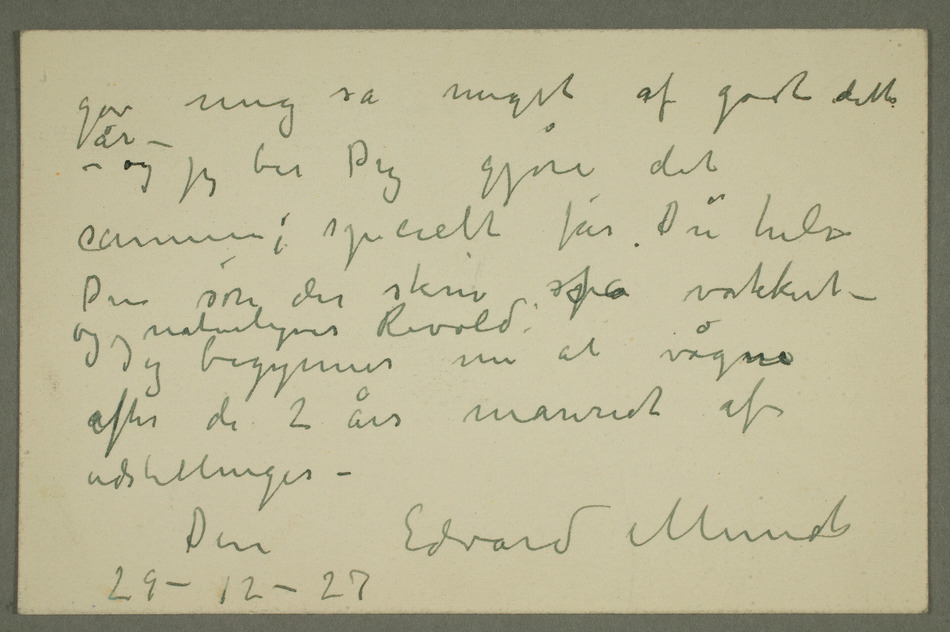 gav mig så meget af godt dette
år –
– og jeg ber Dig gjøre det
samme; specielt får Du hilse
Den som der skrev så vakkert –
og naturligvis Revold.
Jeg begynner nu at vågne
efter de 2 års mareridt af
udstillinger –
Din Edvard Munch
29 – 12 – 27